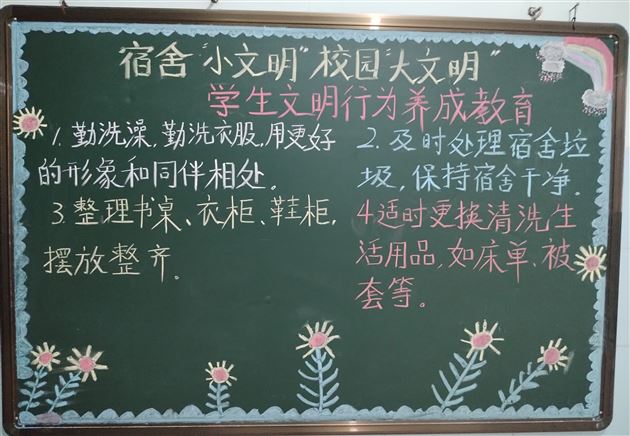 宿舍“小文明”校园“大文明”
学生文明行为养成教育
1.勤洗澡,勤洗衣服,用更好
的形象和同伴相处。
2.及时处理宿舍垃
圾,保持宿舍干净。
3.整理书桌、衣柜、鞋柜,
摆放整齐。
4.适时更换清洗生
活用品,如床单、被
套等。